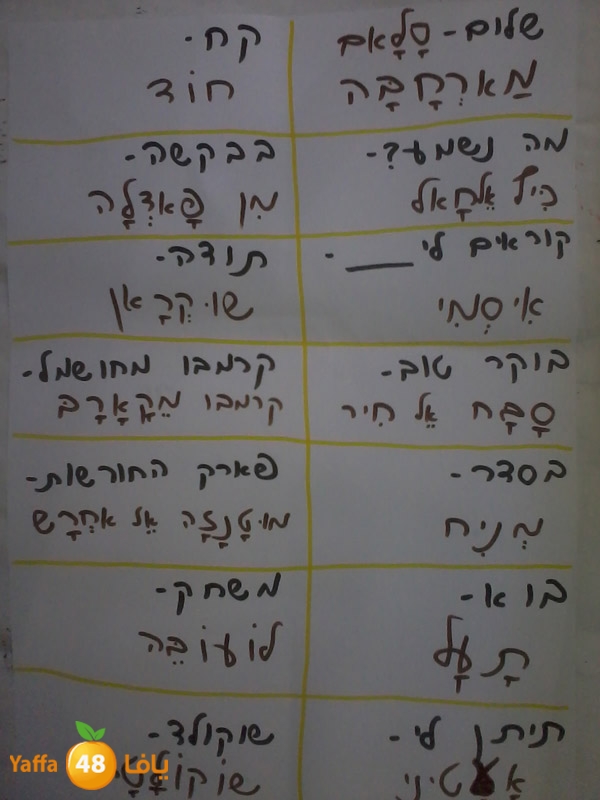 שלום - סָלָאם
מַארְחָבָּה
קח -
חוֹד
מה נשמע? -
כִּיף אֵלְחָאל
בבקשה -
מִן פָאדְלָה
קוראים לי ___ -
אִיסְמִי
תודה -
שוּקְרָאן
בוקר טוב -
סָבָּח אֵל חִיר
קרמבו מחושמל -
קרמבו מֵקָאָרָבּ
בסדר -
מְנִיח
פארק החורשות -
מוּטָנָזָה אֵל אחְרָש
בוא -
תָעָל
משחק -
לוֹעוֹבֵּה
תיתן לי -
אָעטִינִי
שוקולד -
שוֹקוֹלָטָ
Yaffa 48 يافا